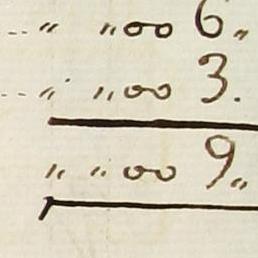 " "oo 6"
" "oo 3.
" "oo 9"